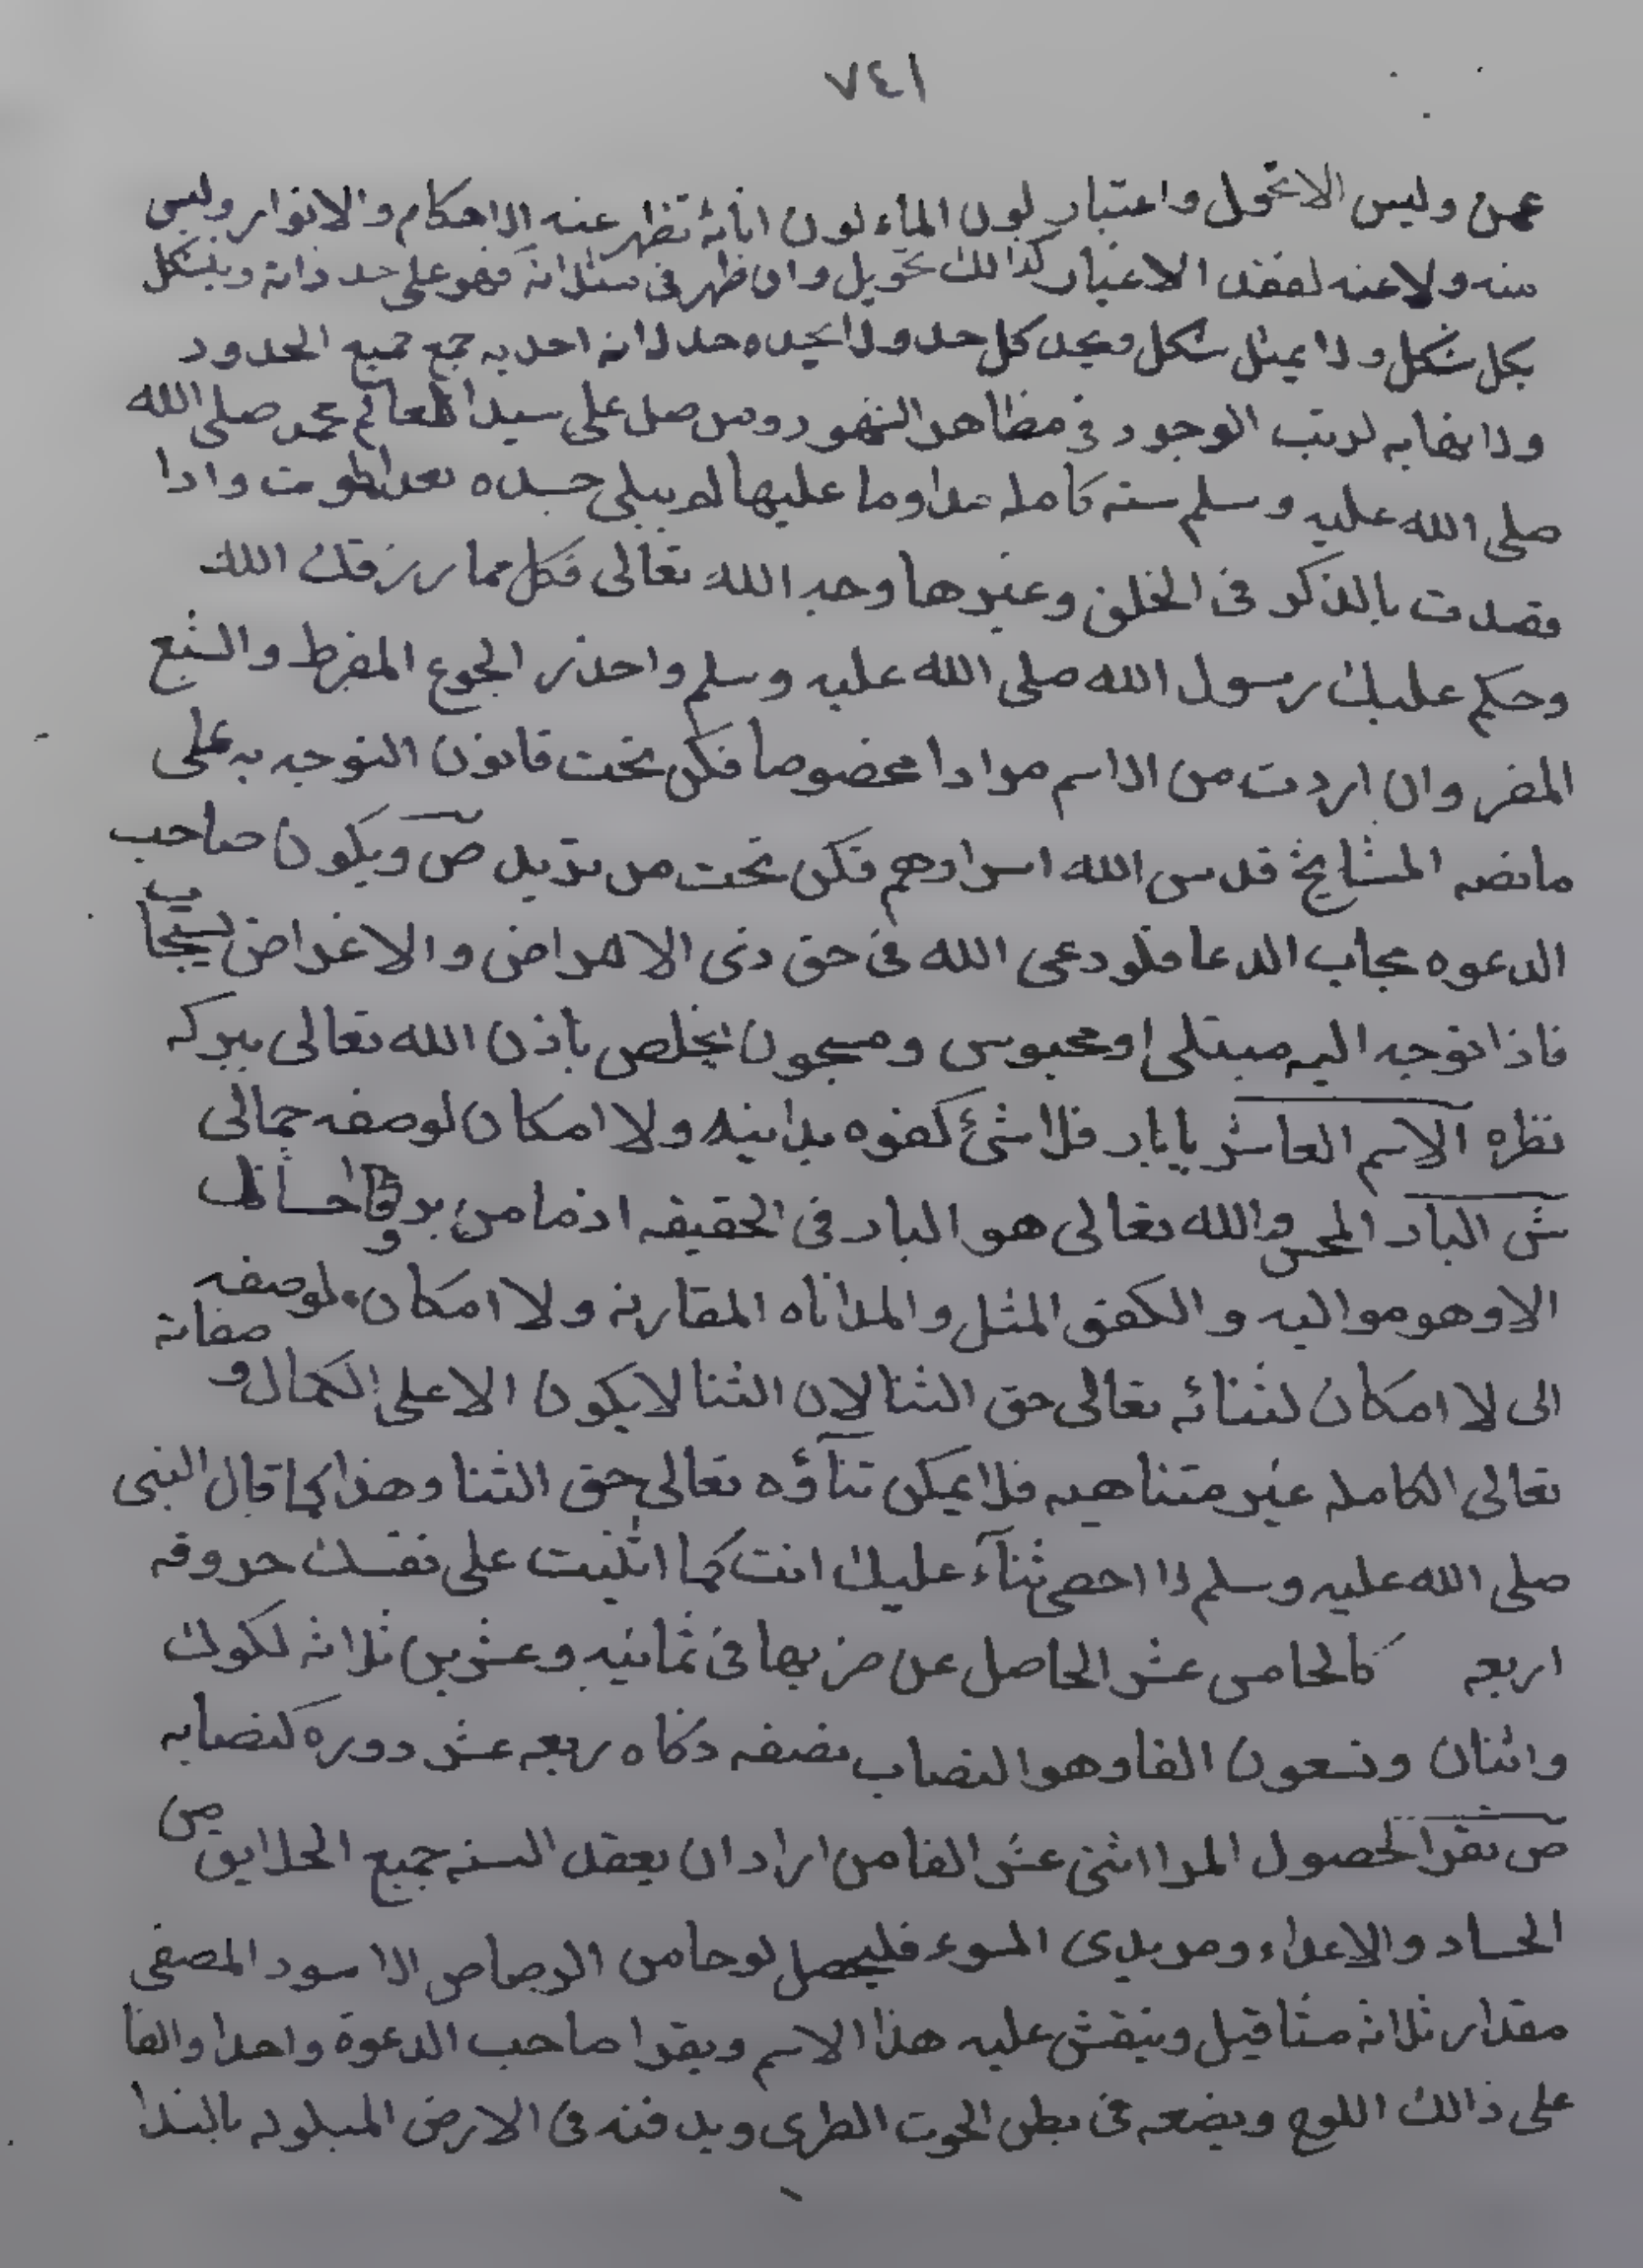 ٧٤١
عمن وليس الا تحول واعتبار لون الماء لون انائه تظهر عنه الاحكام والانوار وليس
منه ولا عنه لفقد الاغيار كذالك تحويل وان ظهر فى فهو على حد ذاته ويشكل
بكل شكل ولا يمثل شكل ويحد كل حد ولا يحده حد لانه احديه جمع جميع الحدود
ولا نهايه لرتب الوجود فى مظاهر ومن صل على سيد العالم محمد صلى الله
صلى الله عليه وسلم سنه كامله مداوما عليها لم يبلى جسده بعد الموت واذا
قصدت بالذكر فى الخلق وغيرها وجه الله تعالى فكل مما رزقك الله
وحكم عليك رسول الله صلى الله عليه وسلم واحذر الجوع المفرط والشبع
المفر وان اردت من الاسم مرادا مخصوصا فكن تحت قانون التوجه به على
مانصه المشايخ قدس الله اسرارهم فكن تحت من تريد ص ويكون صاحب
الدعوه مجاب الدعا فلو دعى الله فى حق ذى الامراض والاغراض ليستجاب
فاذا توجه اليه مبتلى او محبوس ومسجون يخلص باذن الله تعالى ببركه
نظره الاسم العاشر يابار فلا شئ كفوه يدانيه ولا امكان لوصفه جمالى
ش البار المحسن والله تعالى هو البار فى الحقيقه اذ ما من بر واحسان
الا وهو مواليه والكفو المثل والمداناه المقاربه ولا امكان لوصفه
الى لا امكان لثنائه تعالى حق الثنا لان الثنا لا يكون الا على الكمال وصفاته
تعالى الكامله غير متناهيه فلا يمكن ثناؤه تعالى حق الثنا وهذا كما قال النبى
صلى الله عليه وسلم لا احصى ثناء عليك انت كما اثنيت على نفسك حروفه
اربعه كالخامس عشر الحاصل عن ضربها فى ثمانيه وعشرين ثلاثه لكوك
واثنان وتسعون الفا وهو النصاب نصفه ذكاه ربعه عشر دوره كنصابه
ص تقرا لحصول المرا اثنى عشر الفا من اراد ان يعقد السنه جميع الخلايق من
الحساد والاعداء ومريدى السوء فليحصل لوحا من الرصاص الاسود المصفى
مقدار ثلاثه مثاقيل وينقش عليه هذا الاسم ويقرا صاحب الدعوة واحدا والفا
على ذالك اللوح ويضعه فى بطن الحوت الطرى ويدفنه فى الارض المبلوله بالندا